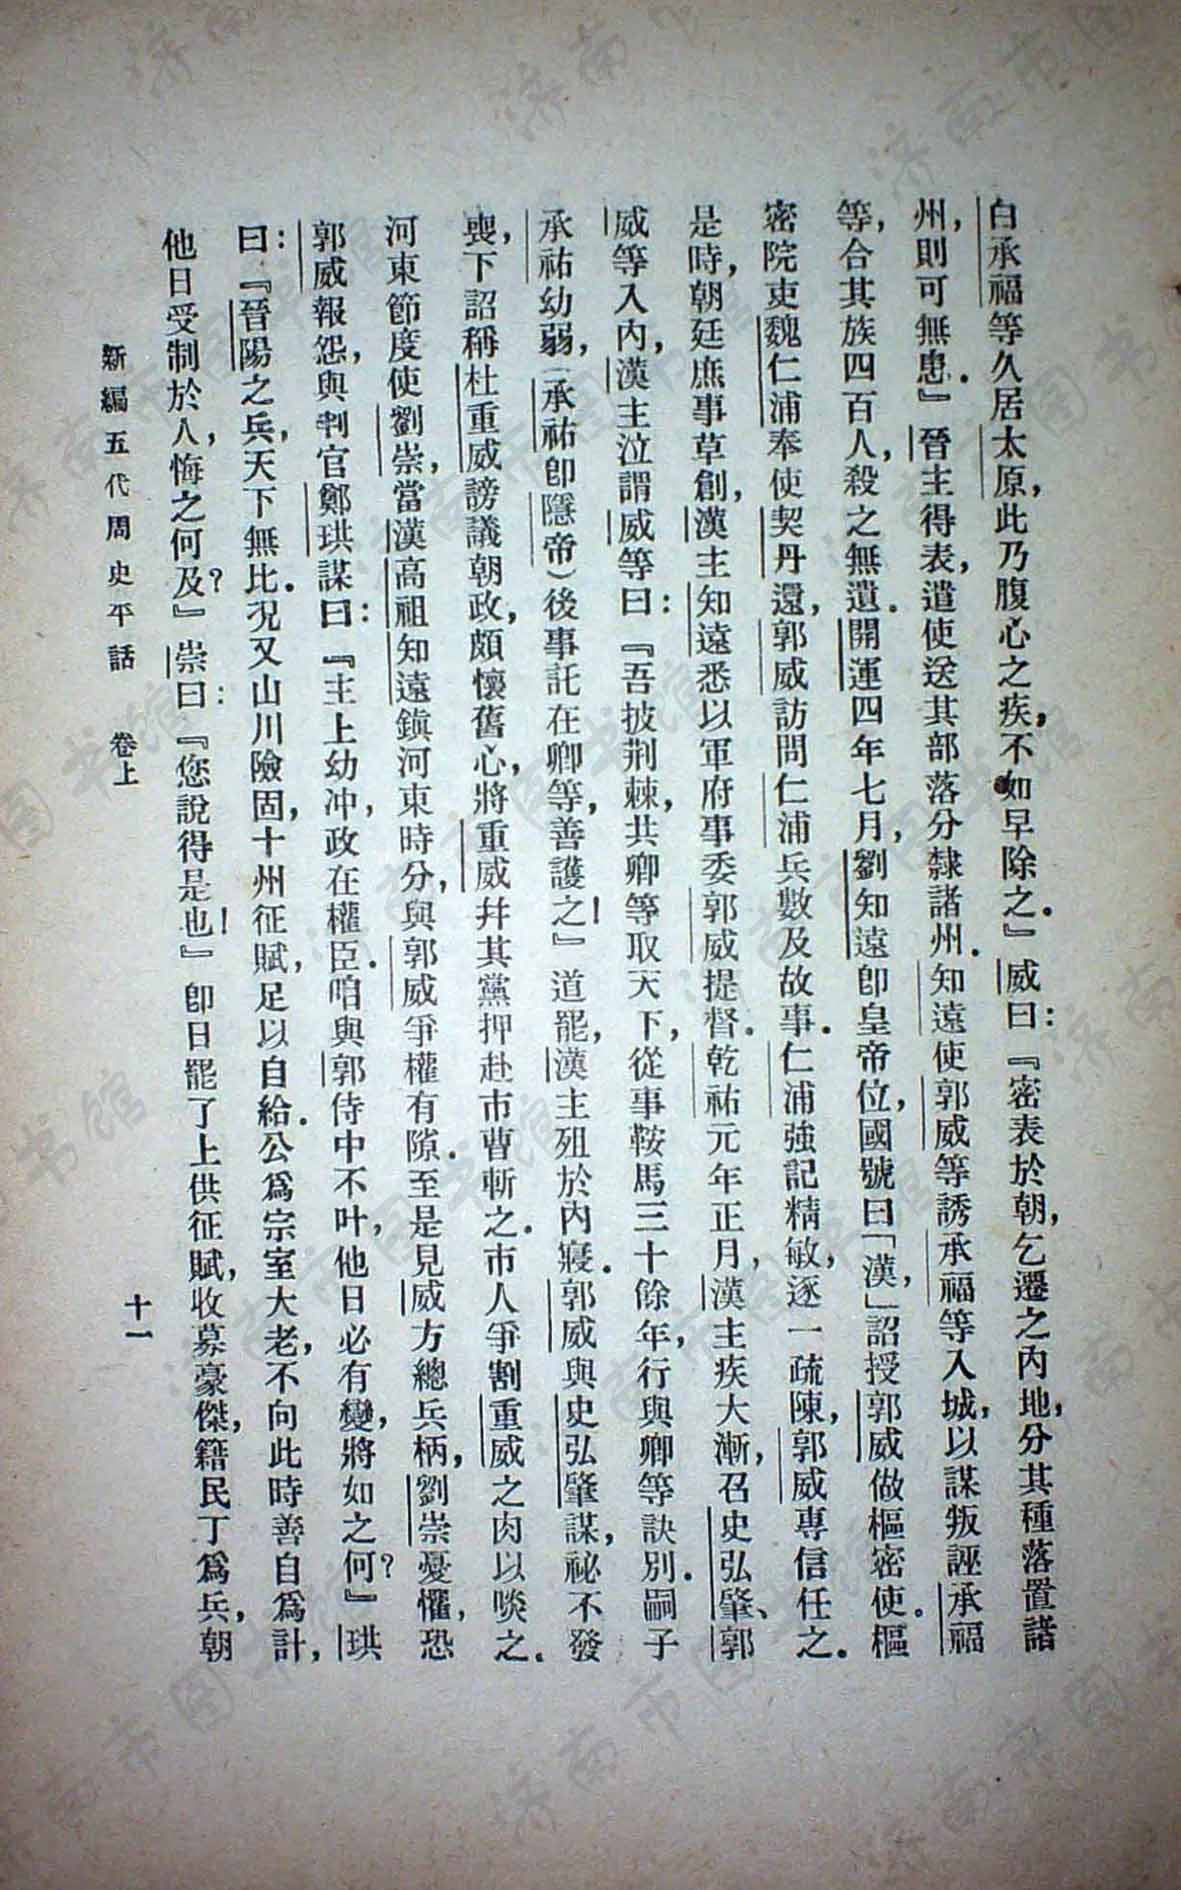 白承福等久居太原，此乃腹心之疾，不如早除之．』威曰：『密表於朝，乞遷之內地，分其種落置諸
州，則可無患．』晉主得表，遣使送其部落分隸諸州．知遠使郭威等誘承福等入城，以謀叛誣承福
等，合其族四百人，殺之無遺．開運四年七月，劉知遠卽皇帝位，國號曰「漢，」詔授郭威做樞密使。樞
密院吏魏仁浦奉使契丹還，郭威訪問仁浦兵數及故事．仁浦強記精敏，逐一疏陳，郭威專信任之．
是時，朝廷庶事草創，漢主知遠悉以軍府事委郭威提督．乾祐元年正月，漢主疾大漸，召史弘肇、郭
威等入內，漢主泣謂威等曰：『吾披荆棘，共卿等取天下，從事鞍馬三十餘年，行與卿等訣別．嗣子
承祐幼弱，（承祐卽隱帝）後事託在卿等，善護之！』道罷，漢主殂於內寢．郭威與史弘肇謀，祕不發
喪，下詔稱杜重威謗議朝政，頗懷舊心，將重威幷其黨押赴市曹斬之．市人爭割重威之肉以啖之．
河東節度使劉崇，當漢高祖知遠鎭河東時分，與郭威爭權有隙．至是見威方總兵柄，劉崇憂懼，恐
郭威報怨，與判官鄭珙謀曰：『主上幼冲，政在權臣．咱與郭侍中不叶，他日必有變，將如之何？』珙
曰：『晉陽之兵，天下無比．况又山川險固，十州征賦，足以自給．公爲宗室大老，不向此時善自爲計，
他日受制於人，悔之何及？』崇曰：『您說得是也！』卽日罷了上供征賦，收募豪傑，籍民丁爲兵，朝
新編五代周史平話　卷上　十一
济南市图书馆